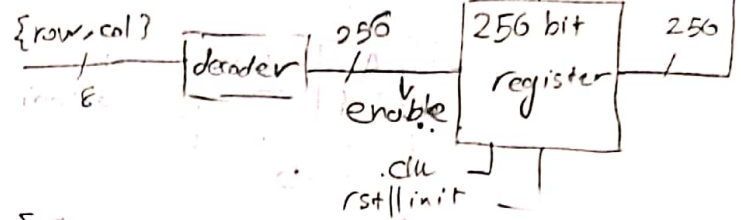 {row,col}
8
decoder
256
enable
256 bit
register
256
clk
rst||init